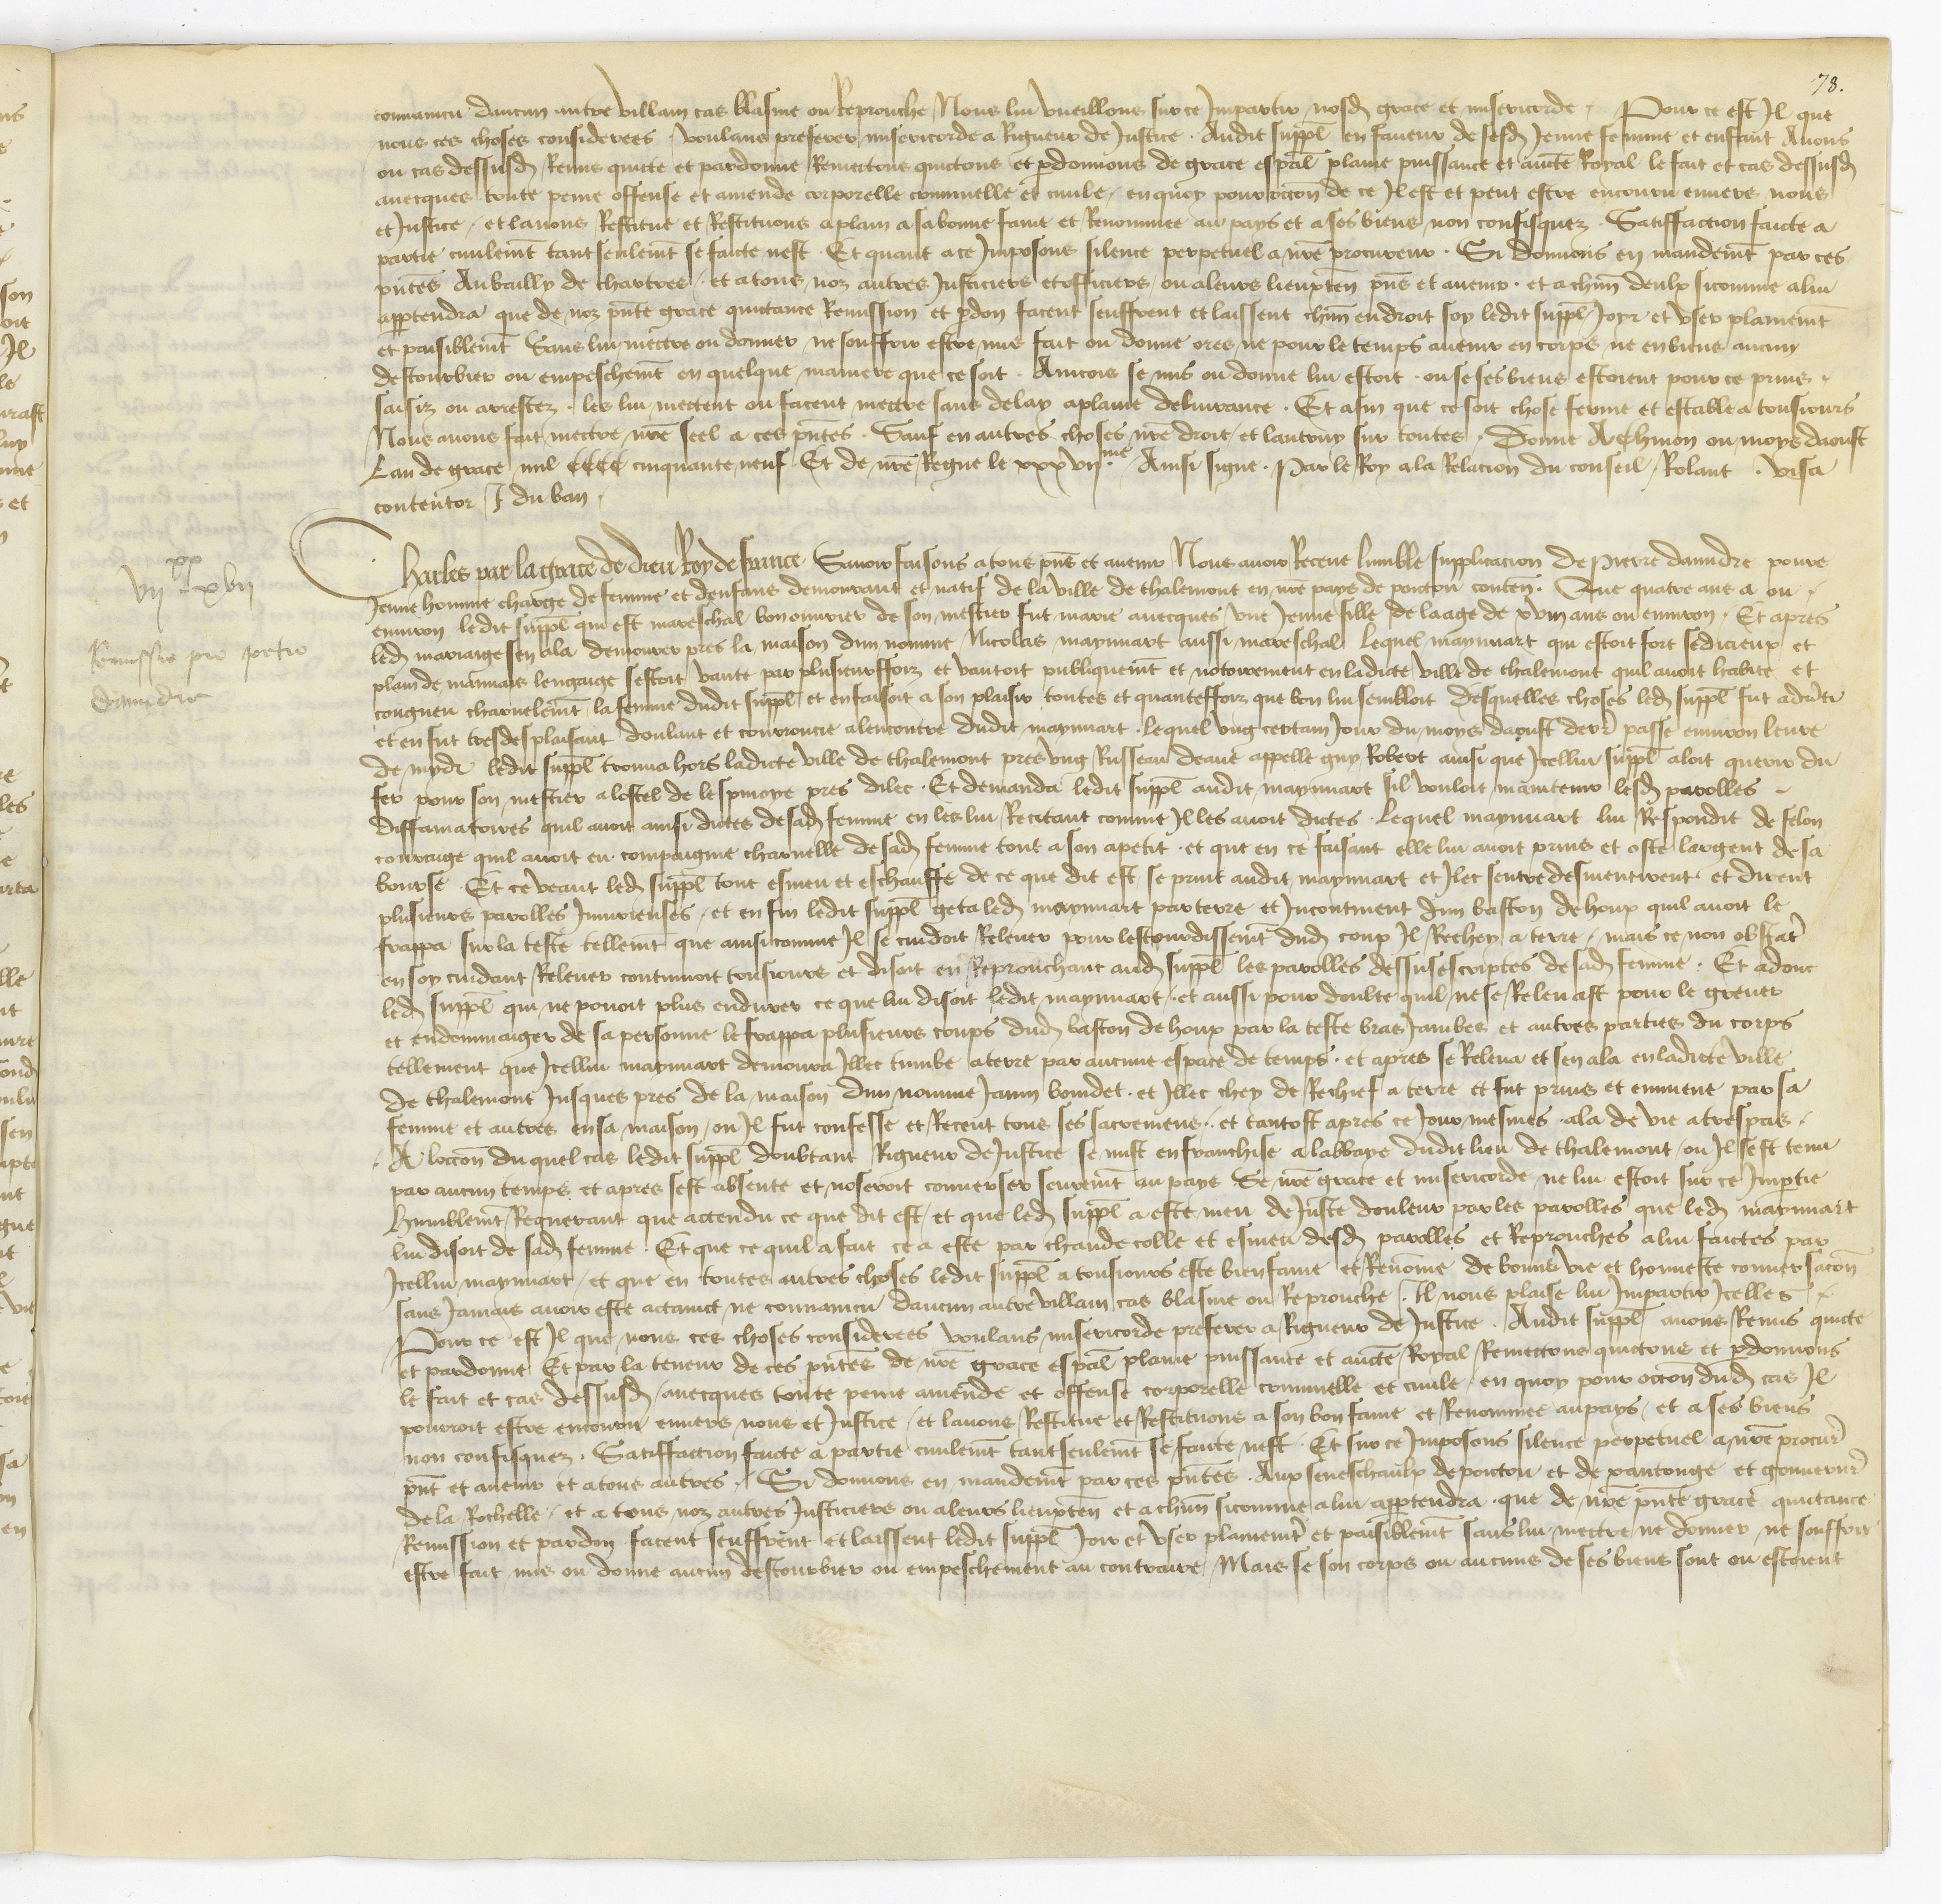 78.
conuaincu daucun autre villain cas blasme ou Reprouche Nous lui vueillons sur ce Impartir nosd grace et misericorde . Pour ce est Il que
nous ces choses considerees voulans preferer misericorde a Rigueur de Justice . Audit suppl en faueur de sesd Jeune femme et enffant Auons
ou cas dessusd Remis quicte et pardonne Remectons quictons et pdonnons de grace espal plaine puissance et aucte Royal le fait et cas dessusd
auecques toute peine offense et amende corporelle criminelle et ciuile en quoy pour occon de ce Il est et peut estre encouru enuers nous
et Justice et lauons Restitue et Restituons a plain a sa bonne fame et Renommee au pays et a ses biens non confisquez . Satiffaction faicte a
partie ciuilemt tant seulemt se faicte nest . Et quant a ce Imposons silence perpetuel a nre procureur . Si donnons en mandemt par ces
pntes Au bailly de chartres et a tous noz autres Justiciers et officiers ou a leurs lieuxten pns et auenir . et a chun deulx sicomme a lui
apptendra que de noz pnte grace quictance Remission et pdon facent seuffrent et laissent chun en droit soy ledit suppl Joyr et vser plainemt
et paisiblemt Sans lui mectre ou donner ne souffrir estre mis fait ou donne ores ne pour le temps auenir en corps ne en biens aucun
destourbier ou empeschemt en quelque maniere que ce soit . Aincois se mis ou donne lui estoit . ou se ses biens estoient pour ce prins
saisiz ou arrestez . les lui mectent ou facent mectre sans delay a plaine deliurance . Et afin que ce soit chose ferme et estable a tousiours
Nous auons fait mectre nre seel a ces pntes . Sauf en autres choses nre droit et lautruy sur toutes . Donne A Chinon ou moys daoust
Lan de grace mil CCCC cinquante neuf Et de nre Regne le xxxvij.me Ainsi signe . Par le Roy a la Relacion du conseil Rolant . visa
contentor J du ban .
Charles par la grace de dieu Roy de france Sauoir faisons a tous pns et auenir Nous auoir Receue lumble supplicacion de Pierre dauidre poure
Jeune homme charge de femme et denfans demourant et natif de la ville de thalemont en nre pays de poictou conten . Que quatre ans a ou
enuiron ledit suppl qui est mareschal bon ouurier de son mestier fut marie auecques vne Jeune fille de laage de xviij ans ou enuiron . Et apres
led mariaige sen ala demourer pres la maison dun nomme Nicolas maynnart aussi mareschal Lequel maynnart qui estoit fort sedicieux et
plain de mauuais lengaige sestoit vante par plusieurffoiz et vantoit publiquemt et notoirement en ladicte ville de thalemont quil auoit habite et
congneu charnelemt la femme dudit suppl et en faisoit a son plaisir toutes et quanteffoiz que bon lui sembloit Desquelles choses led suppl fut aduti
et en fut tresdesplaisant doulant et courroucie alencontre dudit maynnart . Lequel vng certain Jour du moys daoust derr passe enuiron leure
de mydi ledit suppl trouua hors ladicte ville de thalemont pres vng Russeau deaue appelle guy Robert ainsi que Icellui suppl aloit querir du
fer pour son mestier a lostel de lespinoye pres dilec . Et demanda ledit suppl audit maynnart sil vouloit maintenir lesd parolles
diffamatoires quil auoit ainsi dictes de sad femme en les lui Recitant comme Il les auoit dictes . Lequel maynnart lui Respondit de felon
courrage quil auoit eu compaignie charnelle de sad femme tout a son apetit . et que en ce faisant elle lui auoit prins et oste largent de sa
bourse . Et ce veant led suppl tout esmeu et eschauffe de ce que dit est se print audit maynnart et Ilec sentredesmentirent et dirent
plusieurs parolles Iniurieuses et en fin ledit suppl geta led maynnart par terre et Incontinent dun baston de houx quil auoit le
frappa sur la teste tellemt que ainsi comme Il se cuidoit Releuer pour lestourdissemt dud coup Il Rechey a terre mais ce non obstat
en soy cuidant Releuer continuoit tousiours et disoit en Reprouchant aud suppl les parolles dessusescriptes de sad femme . Et adonc
led suppl qui ne pouoit plus endurer ce que lui disoit ledit maynnart . et aussi pour doubte quil ne se Releuast pour le greuer
et endommaiger de sa personne le frappa plusieurs coups dud baston de houx par la teste bras Jambes et autres parties du corps
tellement que Icellui maynnart demoura Illec tumbe a terre par aucune espace de temps . et apres se Releua et sen ala en ladicte ville
de thalemont Jusques pres de la maison dun nomme Jamin boudet . et Illec chey de Rechief a terre et fut prins et emmene par sa
femme et autres en sa maison ou Il fut confesse et Receut tous ses sacremens . et tantost apres ce Jour mesmes ala de vie a trespas .
A loccon duquel cas ledit suppl doubtant Rigueur de Justice se mist en franchise a labbaye dudit lieu de thalemont ou Il sest tenu
par aucun temps et apres sest absente et noseroit conuerser seuremt au pays Se nre grace et misericorde ne lui estoit sur ce Imptie
humblemt Requerant que actendu ce que dit est et que led suppl a este meu de Juste douleur par les parolles que led maynnart
lui disoit de sad femme . Et que ce quil a fait ce a este par chaude colle et esmeu desd parolles et Reprouches a lui faictes par
Icellui maynnart et que en toutes autres choses ledit suppl a tousiours este bien fame et Renomme de bonne vie et honneste conuersacon
sans Jamais auoir este actaint ne conuaincu daucun autre villain cas blasme ou Reprouche . Il nous plaise lui Impartir Icelles
Pour ce est Il que nous ces choses considerees voulans misericorde preferer a Rigueur de Justice . Audit suppl auons Remis quicte
et pardonne Et par la teneur de ces pntes de nre grace espal plaine puissance et aucte Royal Remectons quictons et pdonnons
le fait et cas dessusd auecques toute peine amende et offense corporelle criminelle et ciuile en quoy pour occon dud cas Il
pourroit estre encouru enuers nous et Justice et lauons Restitue et Restituons a son bon fame et Renommee au pays et a ses biens
non confisquez . Satiffaction faicte a partie ciuilemt tant seulemt se faicte nest . Et sur ce Imposons silence perpetuel a nre procur
pnt et auenir et a tous autres . Si donnons en mandemt par ces pntes . Aux seneschaulx de poictou et de xantonge et gouuernr
de la Rochelle et a tous noz autres Justiciers ou a leurs lieuxten et a chun sicomme a lui apptendra . que de nre pnte grace quictance
Remission et pardon facent seuffrent et laissent ledit suppl Joir et vser plainemt et paisiblemt sans lui mectre ne donner ne souffrir
estre fait mis ou donne aucun destourbier ou empeschement au contraire Mais se son corps ou aucuns de ses biens sont ou estoient
vij xx xvij
Remissio pro petro
dauidre